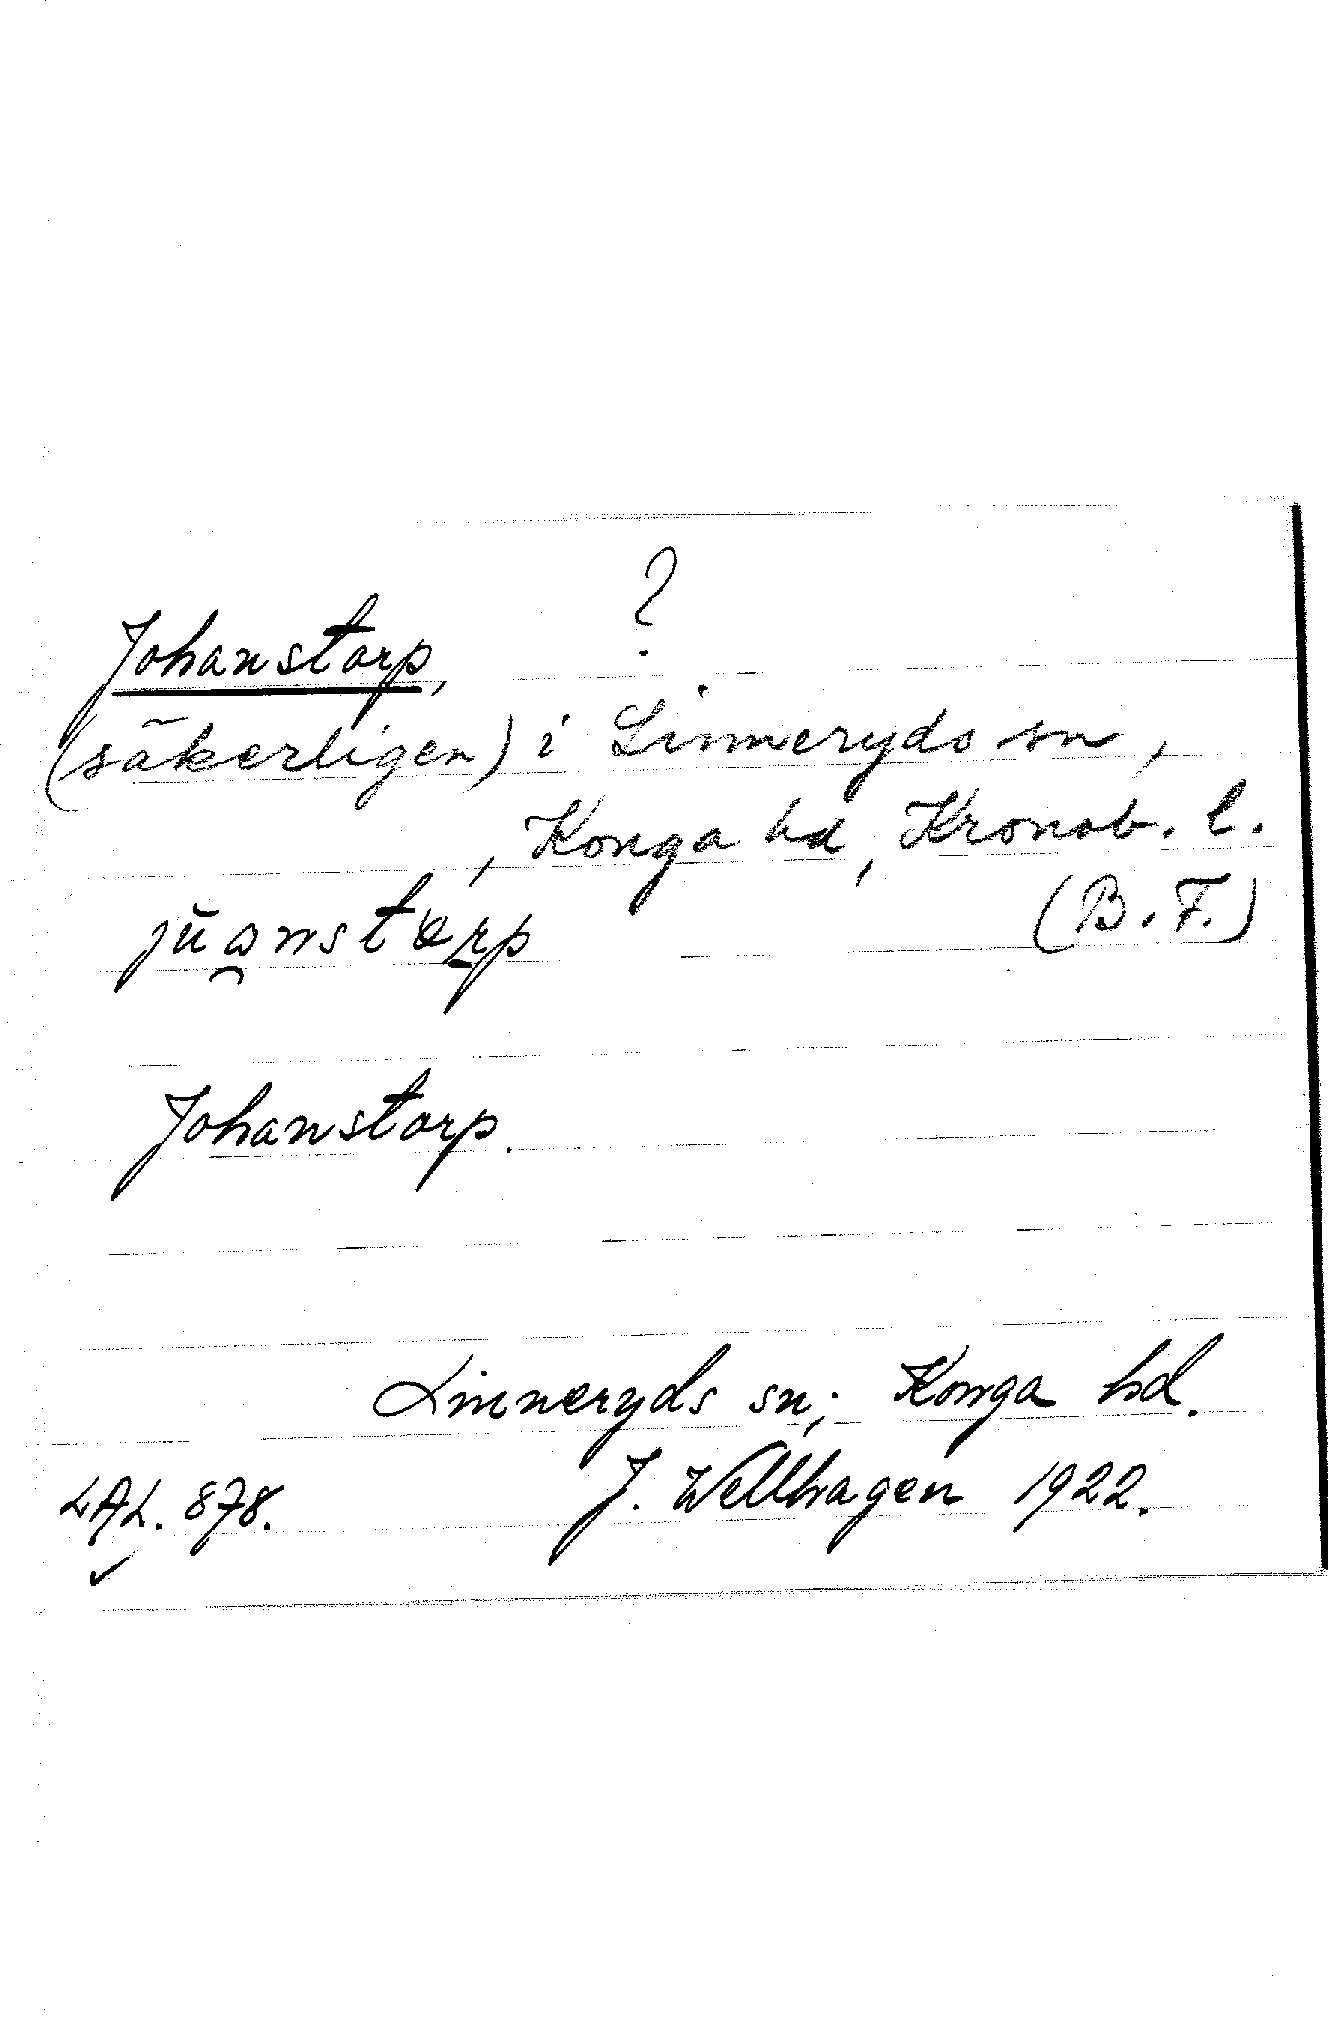 ?
Johanstorp,
(säkerligen) i Linneryds sn,
, Konga hd, Kronob. l.
(B. F.)
Johanstorp.
Linneryds sn; Konga hd.
LAL. 878. J. Wellhagen 1922.
✓